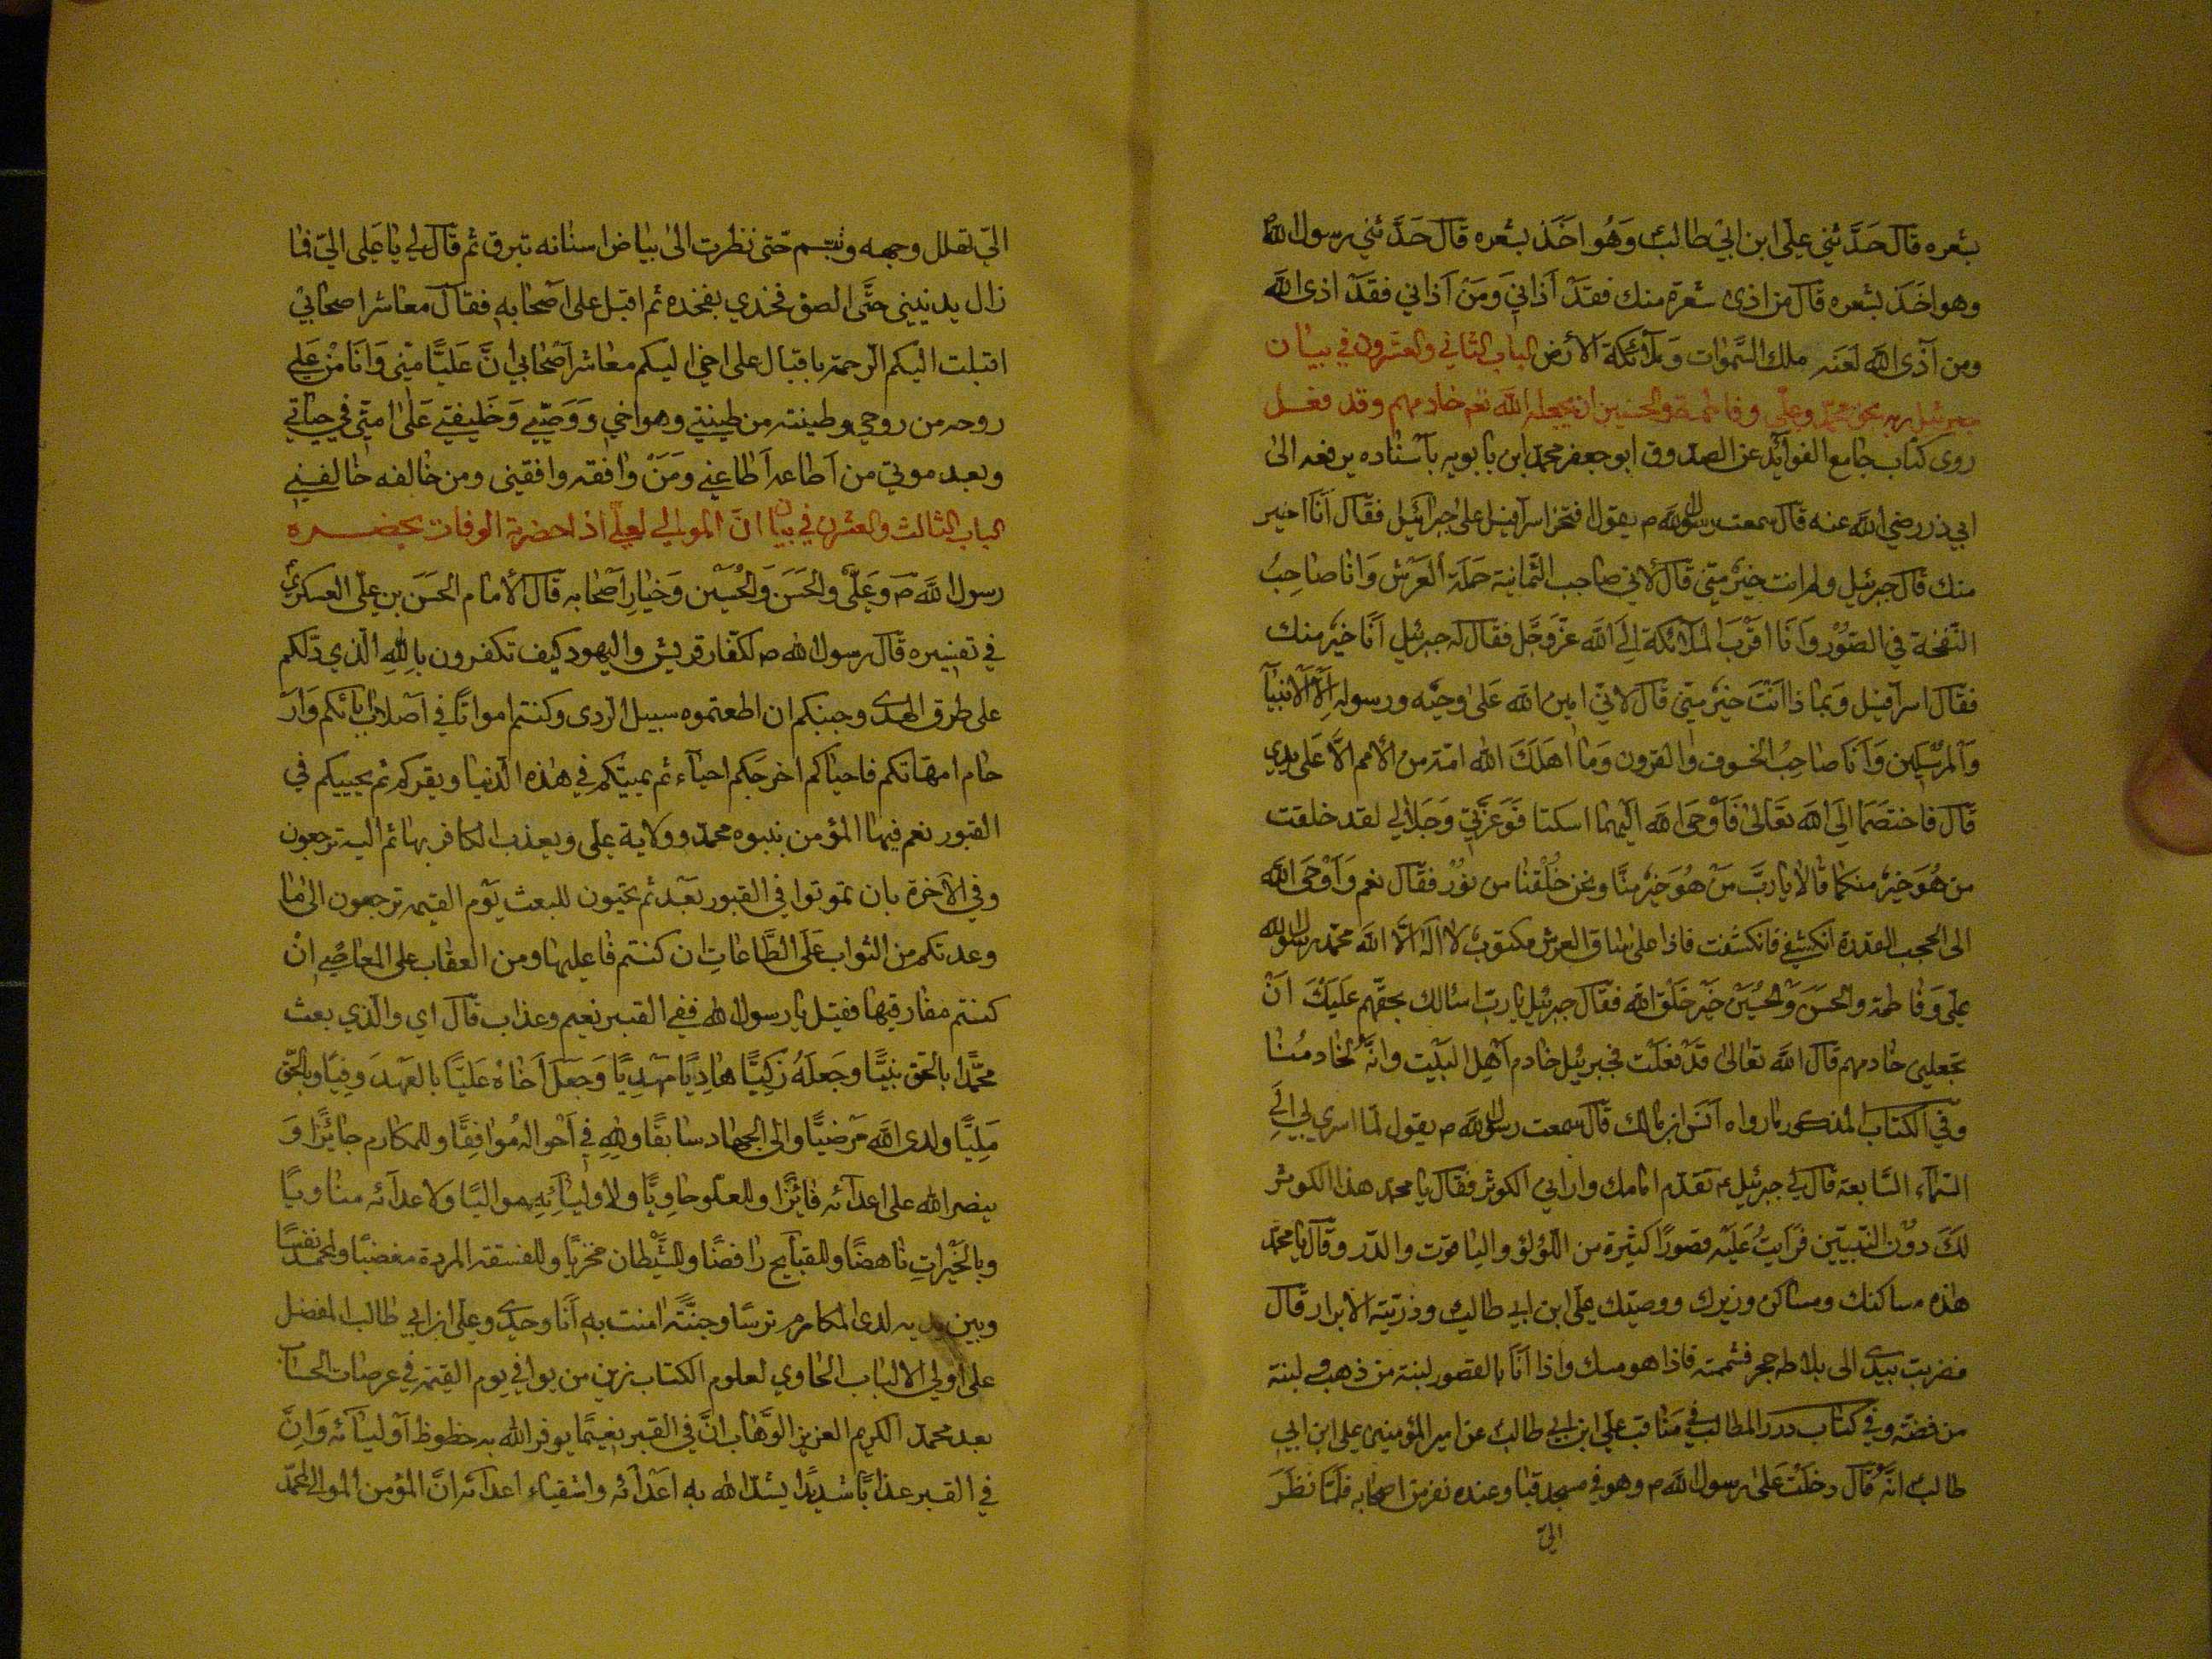 بشعره قال حَدَّثني علي ابن ابي طالب وَهُو اخَذ بشعره قال حَدَّثني رسول الله ص
وهو اخَذ بشعره قال من اذى شعرة منك فقَدْ آذاني وَمَنْ آذاني فقَدْ اذى الله
ومن آذى الله لعَنَه ملك السَّموات وَملآئكة الأرض الباب الثاني والعشرون في بيان
جبرئيل ربه بحق محمّد وعلي وفاطمة والحسنين ان يجعله الله نعم خادمهم وقد فعل
روى كتاب جامع الفوائد عن الصدوق ابو جعفر محمد ابن بابويه بأسناده يرفعه الى
ابي ذر رضي الله عنه قال سمعت رسول الله ص يقول افتخر اسرافيل على جبرائيل فقال أنا خير
منك قال جبرئيل ولم انت خير منّي قال لأني صاحب الثمانية حَملَة العَرش وَانا صاحِبُ
النّفخة في الصوُر وَانَا اقرَب الملآئكة إلى الله عَزّ وَجَل فقال له جبرئيل انَا خيرٌ منك
فقال اسرافيل وَبما ذا انْتَ خيرٌ منّي قال لاني امين الله عَلى وحيْه ورسوله إلى الانبيآ
وَالمرسَلين وَانَا صَاحِبُ الخسوف والقرون وَما اهَلَكَ الله امّة من الأمم الّا عَلى يدي
قال فاختصَمَا الَى الله تعَالى فَأوْحَى الله اليْهما اسكتا فَوَعزّتي وَجَلالي لقد خلقت
من هُوَ خيرٌ منكما قالا يا ربّ مَن هُوَ خيرٌ منّا ونحن خُلقنا من نوُر فقال نعم وَأوْحَى الله
الى الحجب القدرة انكشفي فانكشفت فاذا على ساق العرش مكتوبٌ لا اله الّا الله محمّد رسول الله
علي وَفاطمة والحسَن وَالحُسَيْن خَيْر خَلق الله فقال جبرئيل يا ربّ اسالك بحقّهم عَليَكَ انْ
تجعلني خادمهم قال الله تعالى قَدْ فعَلْت فجبرئيل خادم أهِل البَيْت وانّهُ لخادمُنا
وَفي الكتاب المذكور ما رواه أنَس ابن مالك قال سمعت رسول الله ص يقول لمّا اسري بي الي
السّمآء السّابعة قال لي جبرئيل ع تقدّم امامك وارانى الكوثر فقال يا محمد هذا الكوثر
لكَ دوْن النبيين فرايتُ عَليْه قصورًا كثيرة من اللؤلؤ والياقوت والدّر وقال يا محمد
هذه مساكنك ومساكن وزيرك ووصيّك علي ابن ابي طالب وذريّته الابرار قال
فضربت بيدي الى بلاطه حجر فشممته فاذا هو مسك واذا انَا بالقصور لبنة من ذهب ولبنة
من فضّة وفي كتاب درر المطالب في مناقب علي ابن ابي طالب عن امير المؤمنين علي ابن ابي
طالب انّه قال دخلت عَلى رسول الله ص وهو في مسجد قبا وعنده نفر من اصحابه فلمّا نظَرَ
اليّ
اليّ تهلل وجهه وتبسّم حتى نظرت الى بياض اسنانه تبرق ثم قال لي يا عَلي اليّ فما
زال يدنيني حتّى الصق فخذي بفخذه ثم اقبل على اصحابه فقال معاشر اصحابي
اقبلت اليكم الرحمة باقبال على اخي اليكم معاشر أصحابي انّ عَليّا منّي وَانَا مِنْ عَلي
روحه من روحي وطينته من طينتي وهو اخي وَوَصِيّي وَخَليفتي عَلى امّتي في حيَاتي
وبعد موتي من اطاعه اطاعني ومَنْ وافقه وافقني ومن خالفه خالفني
الباب الثالث والعشرون في بيان انّ الموالي لعلي اذا حضرة الوفات بحضره
رسول الله ص وَعَلي والحَسَن وَالحُسَيْن وَخيار أصحابه قال الأمام الحَسَن بن علي العسكري
في تفسيره قال رسول الله ص لكفّار قريش واليهود كيف تكفرون باِلله الّذي دَلكم
على طرق الهدى وجنبكم ان اطعتموه سبيل الردى وكنتم امواتًا في أصلاب ابائكم وَارْ
حام امهاتكم فاحياكم اخرجكم احيآء ثم يميتكم في هذه الدنيا ويقبركم ثم يحييكم في
القبور نعم فيها المؤمن بنبوه محمّد وولاية علي ويعذب الكافر بها ثم اليه ترجعون
وفي الآخرة بان تموتوا في القبور بعَد ثم تحيون للبعث يَوْم القيمة ترجعون الى ما
وعدتكم من الثواب عَلى الطّاعاتِ ان كنتم فاعليها ومن العقاب على المعاصِي انْ
كنتم مفارقيها فقيل يا رسول الله ففي القبر نعيم وعذاب قال اي والّذي بعث
محمّدًا بالحق نبيّا وجَعلَهُ زكيّا هَادِيًا مَهْديًا وَجَعل أخاهُ عَليّا بالعَهْد وَفيّا وبالحق
مَليّا ولدى الله مرَضيًا والى الجهاد سابقًا ولله في أحواله مُوافِقًا وللمكارم حائزًا وَ
بنصر الله على اعدآئه فائزًا وللعلوم حاويًا ولاوليآئِه مواليًا وَلاعدآئه مناويًا
وبالخيْراتِ ناهضًا وللقبايح رافضًا وللشيْطان مخزيًا وللفسقة المردة مغضبًا ولمحمد نفسًا
وبين يديه لدى المكاره ترسًا وجنّة امنت به أنا وحدي وعلي ابن ابي طالب المفضل
على اولي الالباب الحاوي لعلوم الكتاب زين من يوافي يوم القيمة في عرصات الحساب
بعد محمد الكريم العزيز الوّهاب انّ في القبر نعيمًا يوفر الله به حظوظ أوليآئه وَانّ
في القبر عذابًا شديدًا يشدّ الله به اعدآئه واشقياء اعدآئه انّ المؤمن الموالي لمحمّد